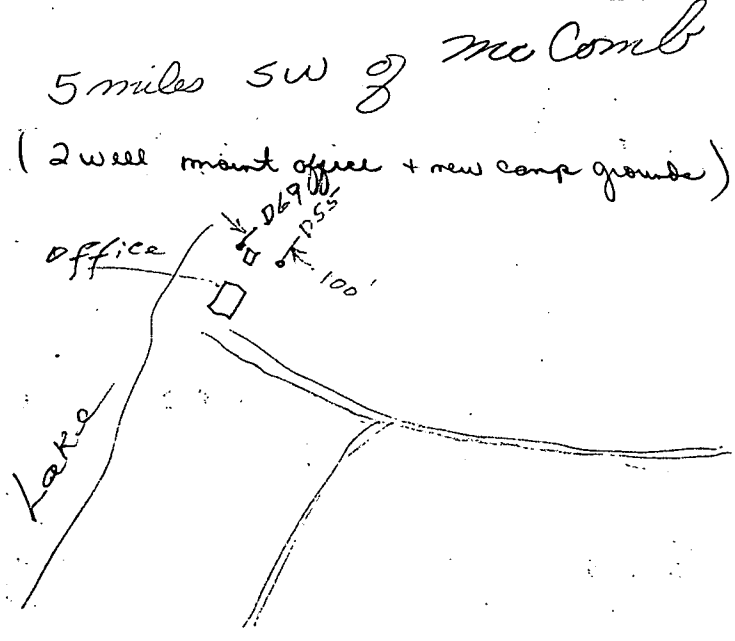 5 miles SW of McComb
(2 well maint office + new camp grounds)
D69
D55
Office
100'
Lake